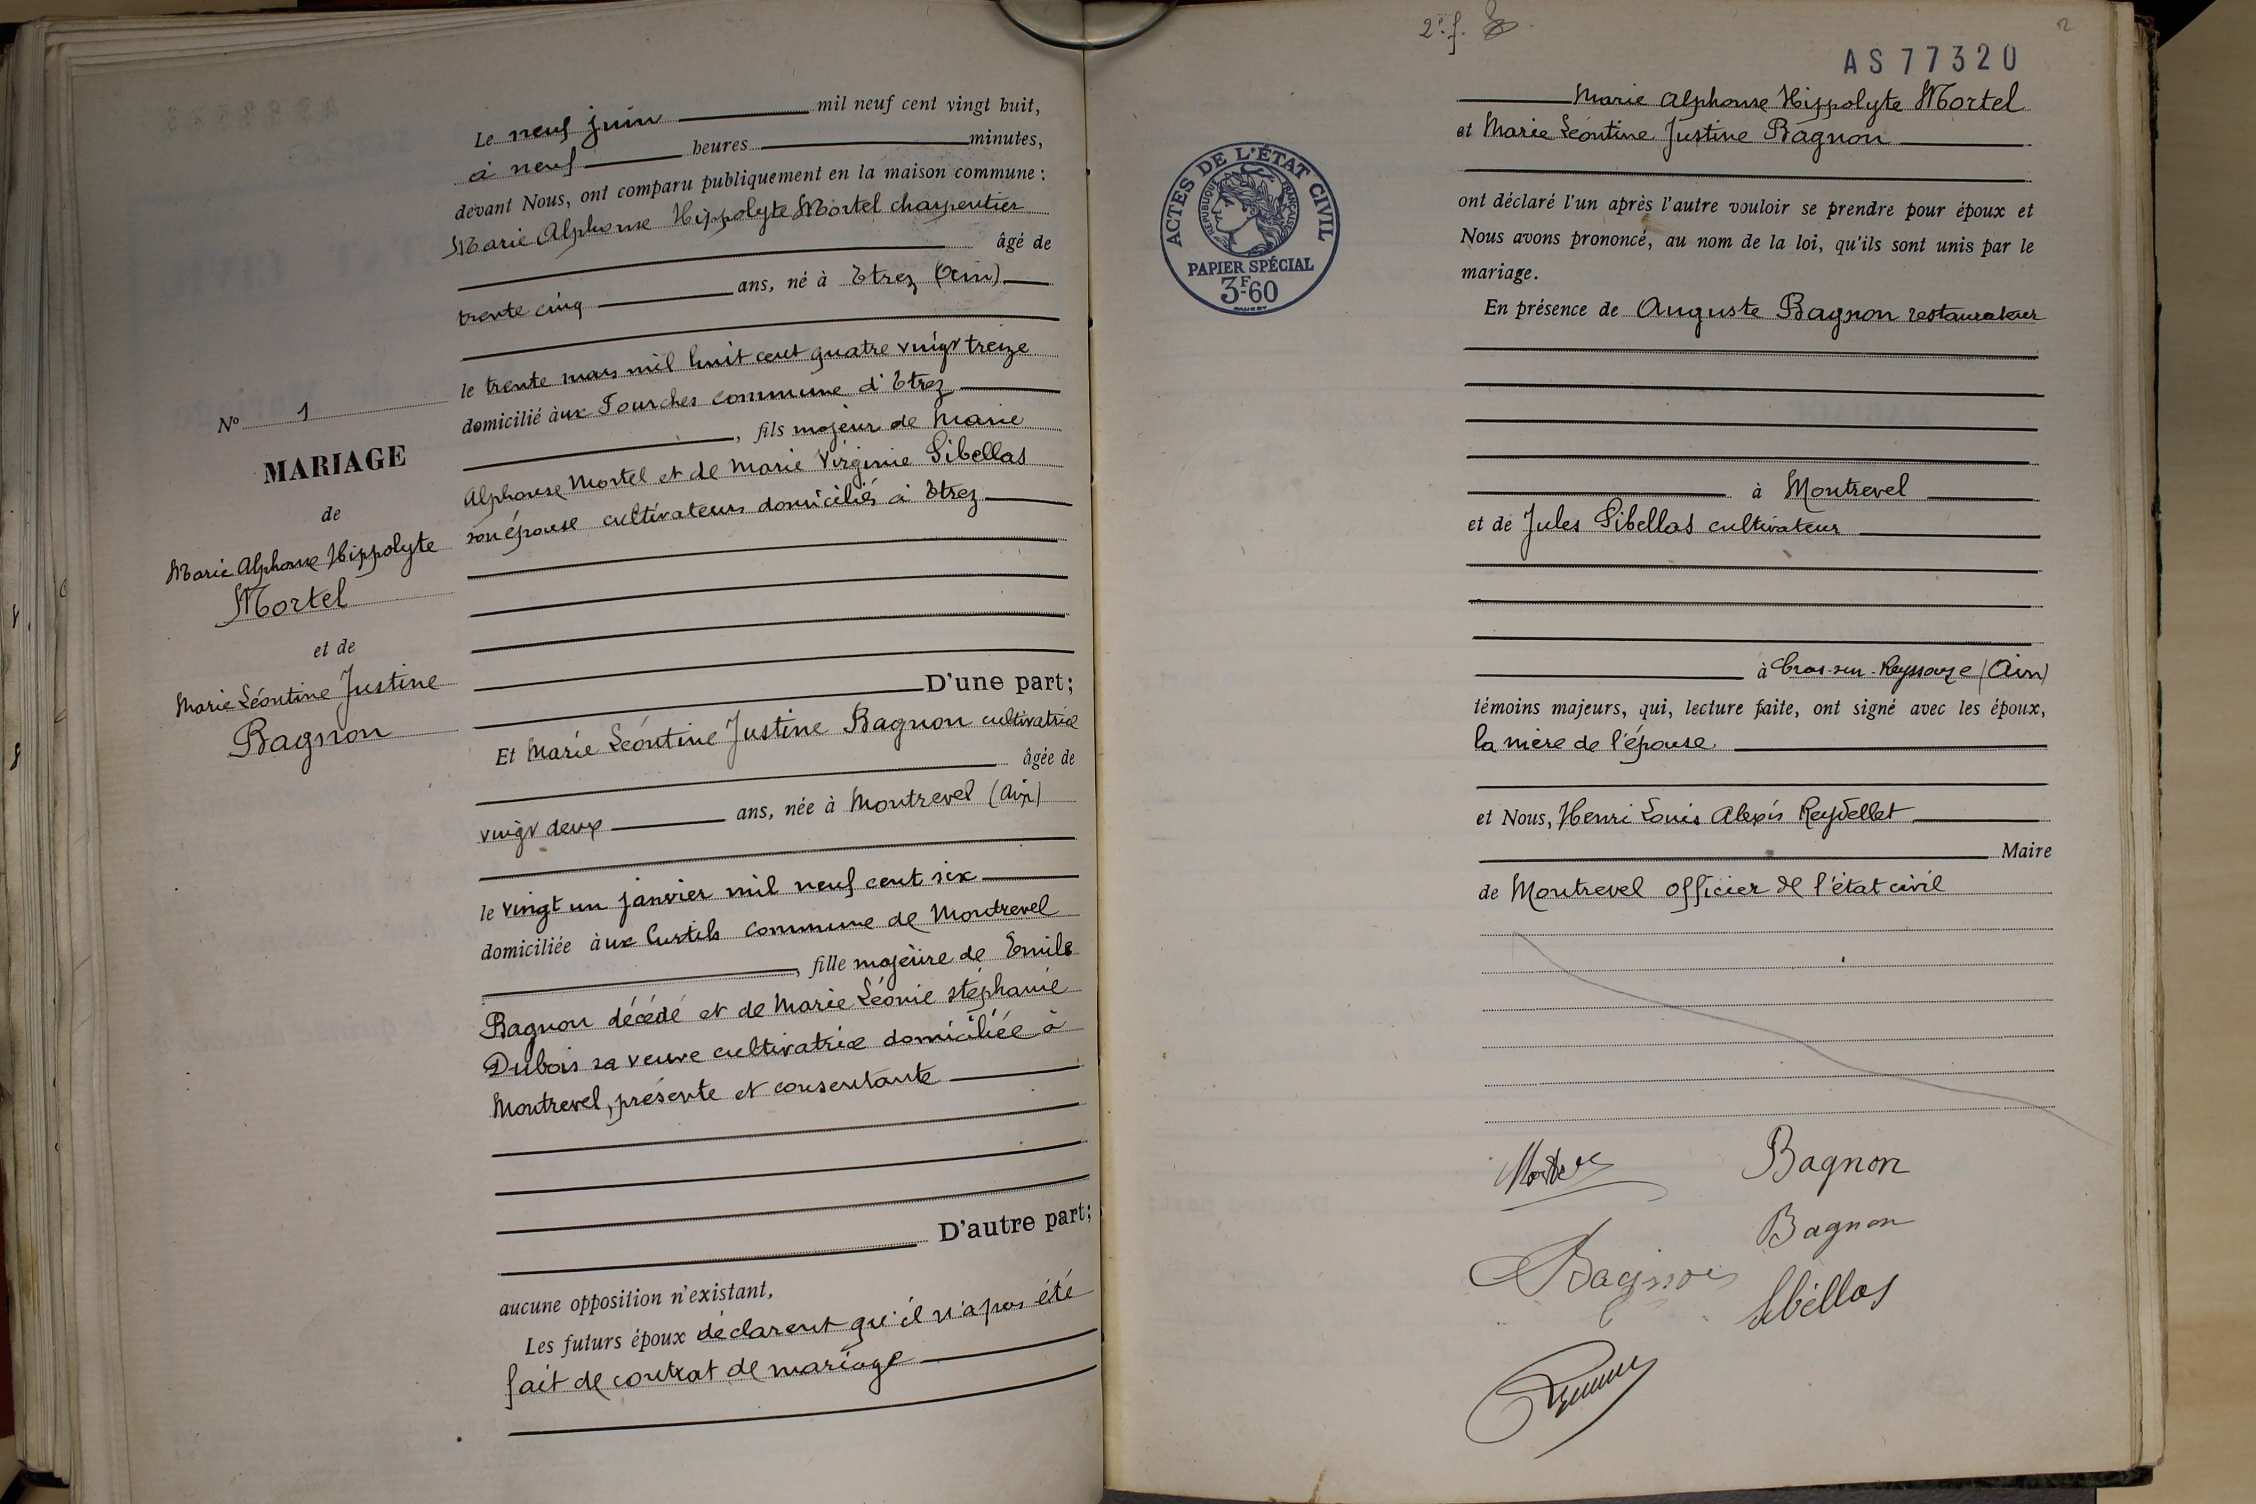 N° 1
MARIAGE
de
Marie Alphonse Hippolyte
Mortel
et de
Marie Léontine Justine
Bagnon
Le neuf juin mil neuf cent vingt huit,
à neuf heures minutes,
devant Nous, ont comparu publiquement en la maison commune :
Marie Alphonse Hippolyte Mortel charpentier
âgé de
trente cinq ans, né à Etrez (Ain)
le trente mars mil huit cent quatre vingt treize
domicilié àux Fourches commune d'Etrez
, fils majeur de Marie
Alphonse Mortel et de Marie Virginie Sibellas
son épouse cultivateurs domiciliés à Etrez
D'une part;
Et Marie Léontine Justine Bagnon cultivatrice
âgée de
vingt deux ans, née à Montrevel (Ain)
le vingt un janvier mil neuf cent six
domiciliée àux Curtils commune de Montrevel
, fille majeure de Emile
Bagnon décédé et de Marie Léonie Stéphanie
Dubois sa veuve cultivatrice domiciliée à
Montrevel, présente et consentante
D'autre part;
aucune opposition n'existant,
Les futurs époux déclarent qu'il n'a pas été
fait de contrat de mariage
2e f.
2
AS 77320
ACTES DE L'ÉTAT CIVIL
RÉPUBLIQUE FRANÇAISE
PAPIER SPÉCIAL
3F60
Marie Alphonse Hippolyte Mortel
et Marie Léontine Justine Bagnon
ont déclaré l'un après l'autre vouloir se prendre pour époux et
Nous avons prononcé, au nom de la loi, qu'ils sont unis par le
mariage.
En présence de Auguste Bagnon restaurateur
à Montrevel
et de Jules Sibellas cultivateur
à Cras-sur-Reyssouze (Ain)
témoins majeurs, qui, lecture faite, ont signé avec les époux,
la mère de l'épouse
et Nous, Henri Louis Alexis Reydellet
Maire
de Montrevel officier de l'état civil
Mortel Bagnon
Bagnon
Bagnon
Sibellas